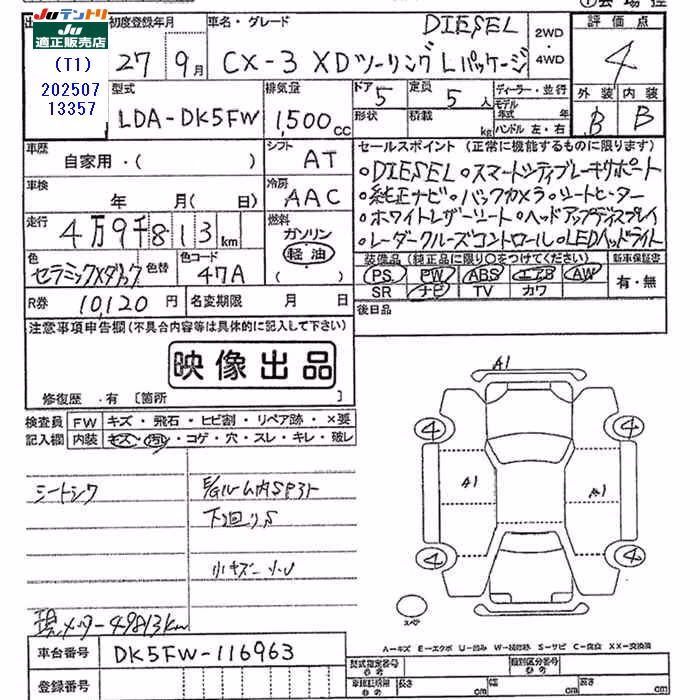 ①会場控
JUテントリ
JU
適正販売店
(T1)
202507
13357
初度登録年月
27 9月
車名・グレード
DIESEL
CX-3 XDツーリング Lパッケージ
2WD
・
4WD
評価点
4
外装 内装
B B
型式
LDA-DK5FW
排気量
1,500cc
ドア 5
定員 5人
ディーラー・並行
形状
積載 kg
モデル
年式 年
ハンドル 左・右
車歴
自家用・( )
シフト AT
セールスポイント (正常に機能するものに限ります)
○DIESEL ○スマートシティブレーキサポート
○純正ナビ ○バックカメラ ○シートヒーター
○ホワイトレザーシート ○ヘッドアップディスプレイ
○レーダークルーズコントロール ○LEDヘッドライト
車検
年 月( 日)
冷房 AAC
走行
4万9千813km
燃料
ガソリン
軽油
( )
色
セラミックXダーク
色替
色コード
47A
装備品 (純正品に限り○をつけてください)
新車保証書
PS PW ABS エアB AW
SR ナビ TV カワ
有・無
R券 10,120円
名変期限 月 日
後日品
注意事項申告欄(不具合内容等は具体的に記入して下さい)
映像出品
修復歴・有 [箇所 ]
検査員
記入欄
FW キズ・飛石・ヒビ割・リペア跡・×要
内装 キズ・汚れ・コゲ・穴・スレ・キレ・破レ
シートシワ
E/Gルーム内SPｻﾄ
下廻りS
小キズ・小U
現メーター49813km
A1
4 4
A1 A1
4 4
スペア
A-キズ E-エクボ U-凹み W-補修跡 S-サビ C-腐食 XX-交換済
車台番号 DK5FW-116963
登録番号
型式指定番号
類別区分番号
長さ cm 幅 cm 高さ cm